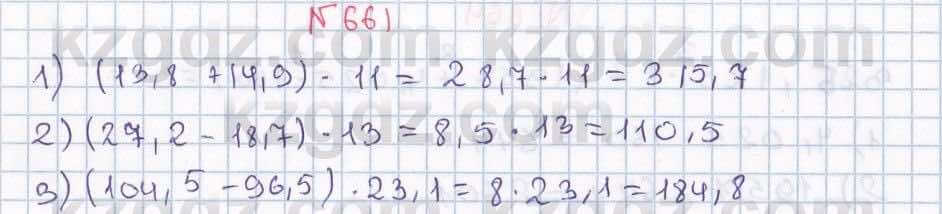 №661
1) (13,8 + 14,9) · 11 = 28,7 · 11 = 315,7
2) (27,2 - 18,7) · 13 = 8,5 · 13 = 110,5
3) (104,5 - 96,5) · 23,1 = 8 · 23,1 = 184,8
kzgdz.com kzgdz.com